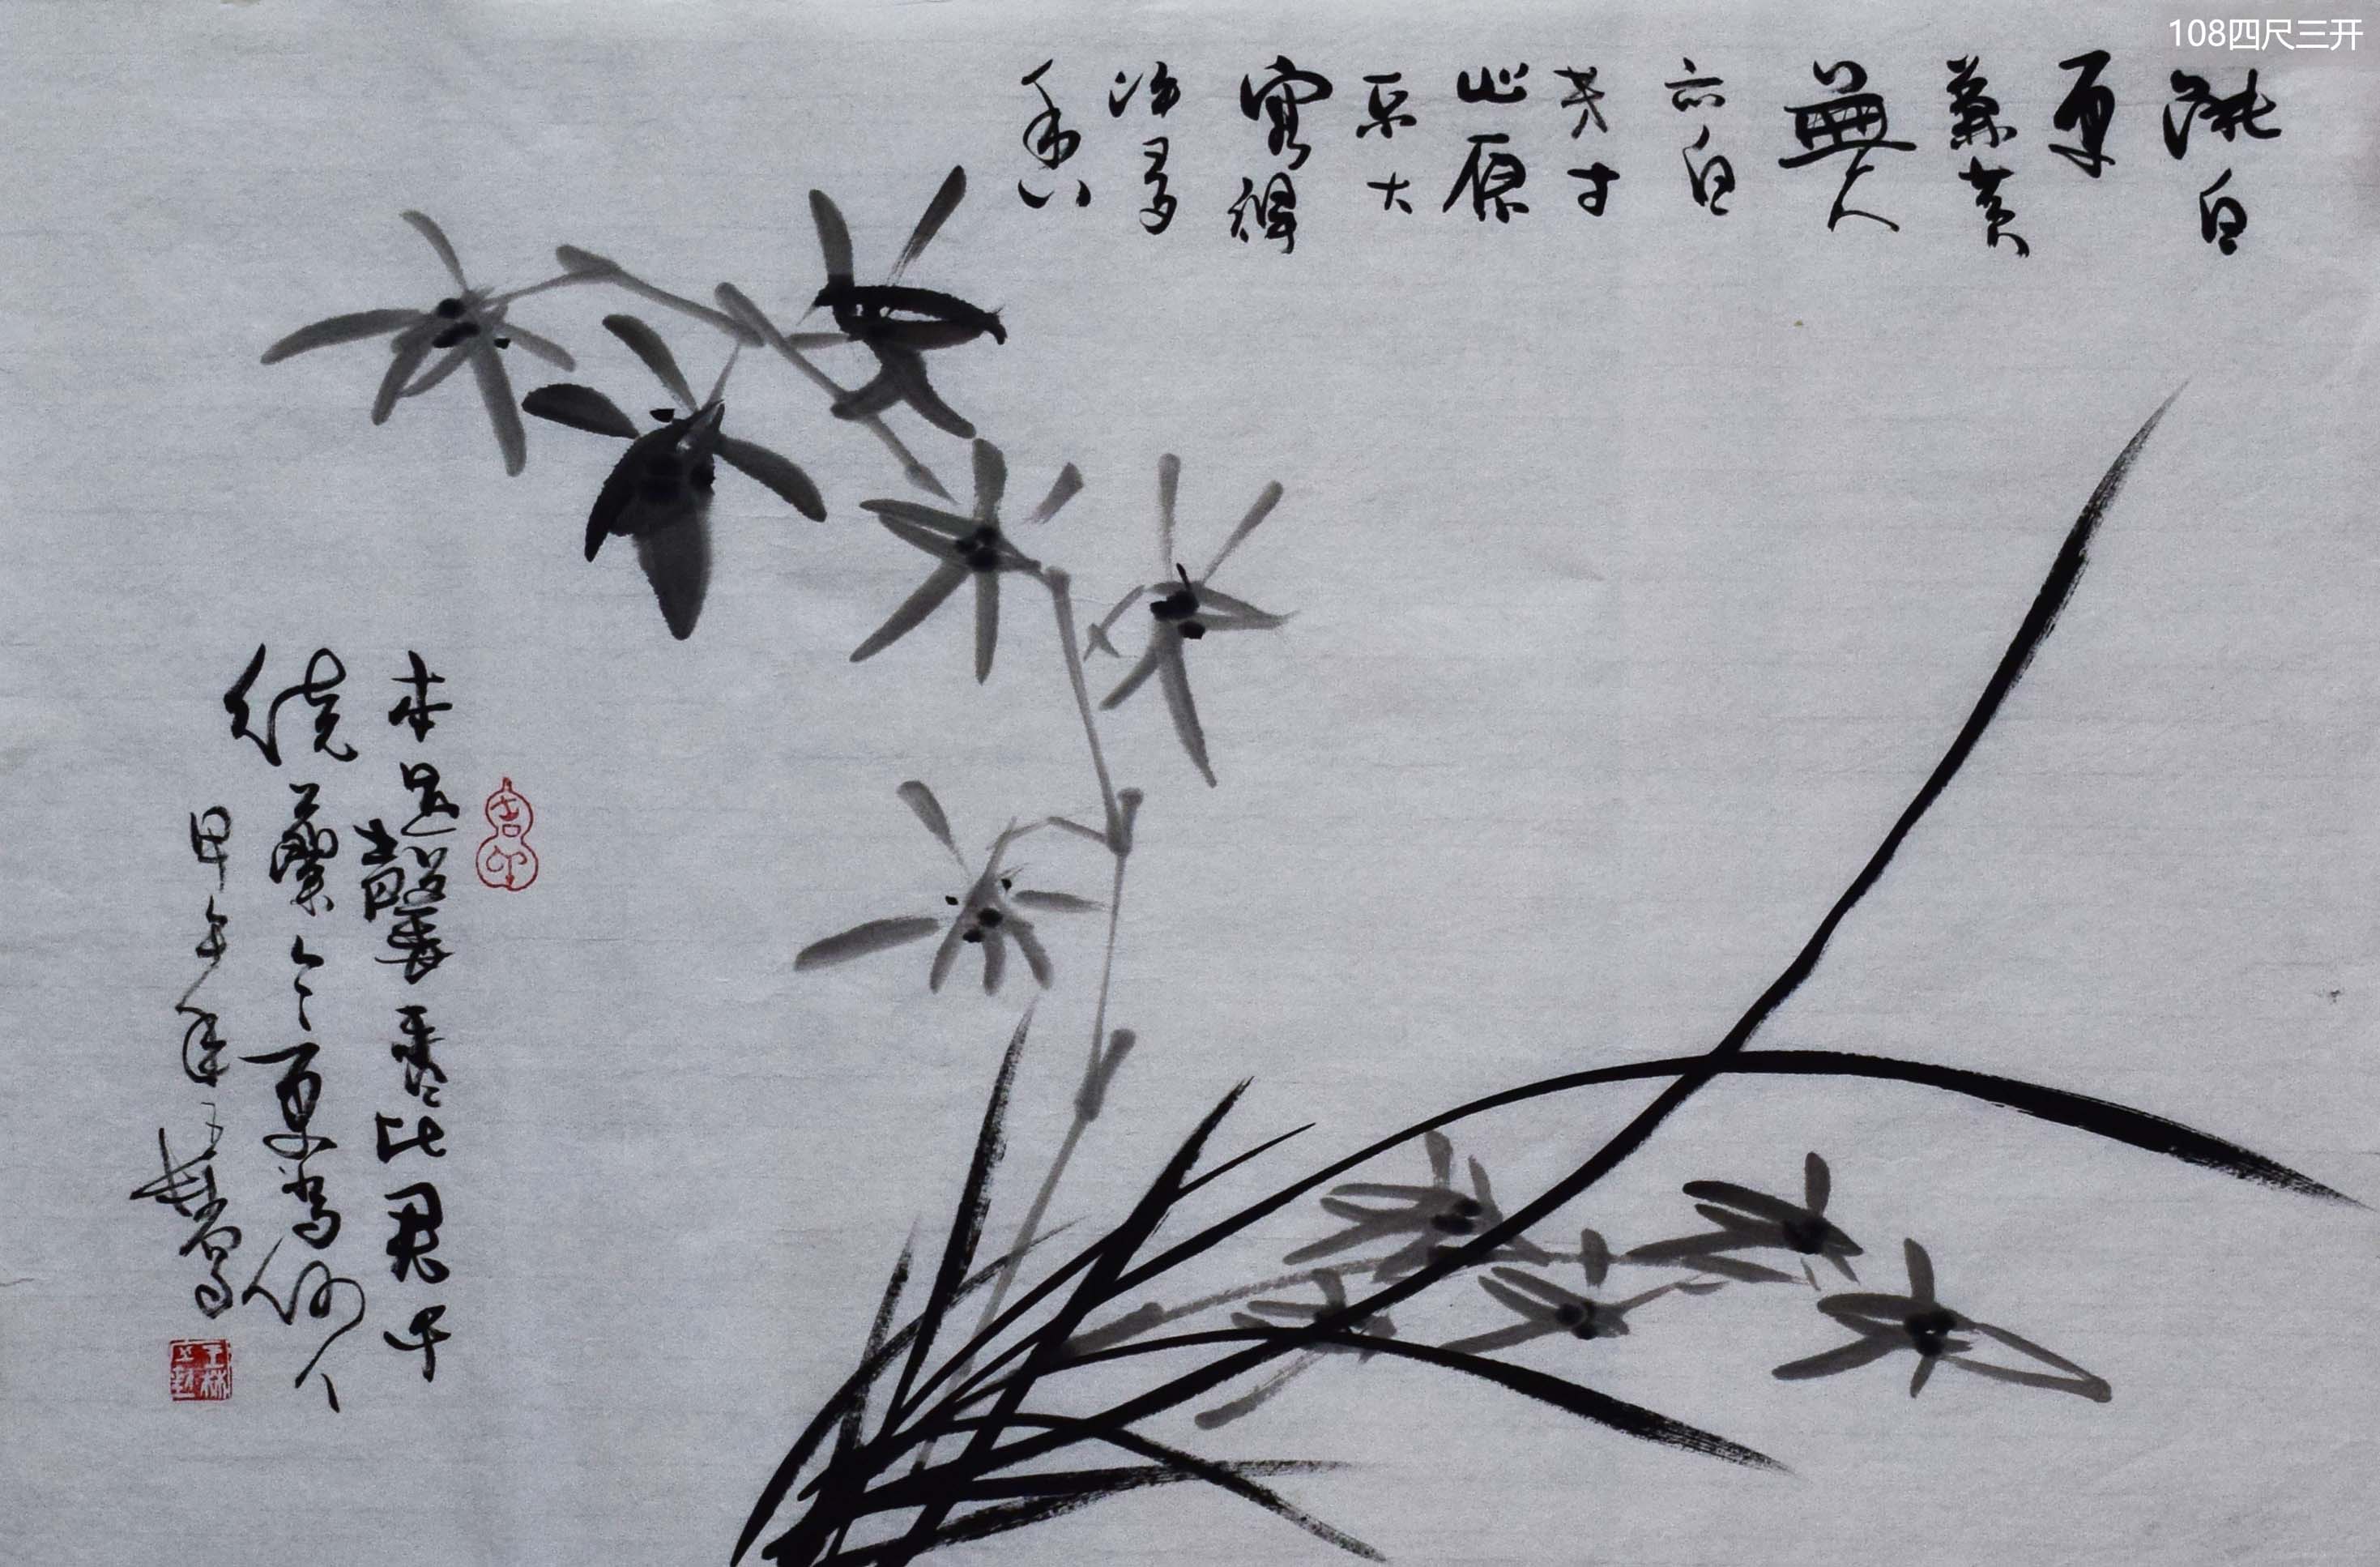 108四尺三开
能白
更
兼黄
無人
亦自
芳寸
心原
不大
容得
許多
香
吉印
本是馨香比君子
繞欄今更為何人
甲午年